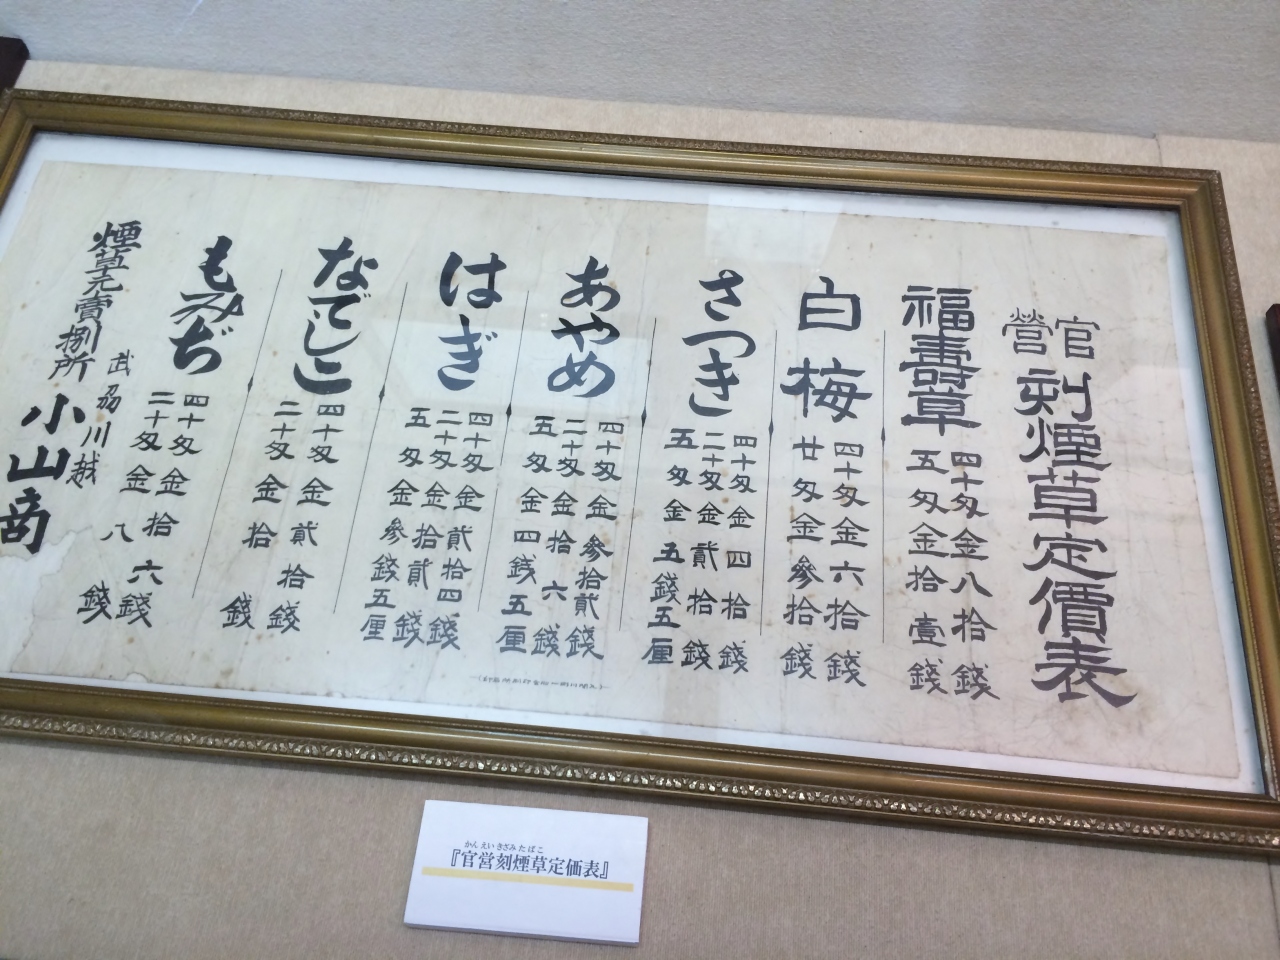 官營刻煙草定價表
福壽草
四十匁金八拾錢
五匁金拾壹錢
白梅
四十匁金六拾錢
廿匁金參拾錢
さつき
四十匁金四拾錢
二十匁金貳拾錢
五匁金五錢五厘
あやめ
四十匁金參拾貳錢
二十匁金拾六錢
五匁金四錢五厘
はぎ
四十匁金貳拾四錢
二十匁金拾貳錢
五匁金參錢五厘
なでしこ
四十匁金貳拾錢
二十匁金拾錢
もみぢ
四十匁金拾六錢
二十匁金八錢
煙草元賣捌所
武刕川越
小山商
かんえいきざみたばこ
『官営刻煙草定価表』